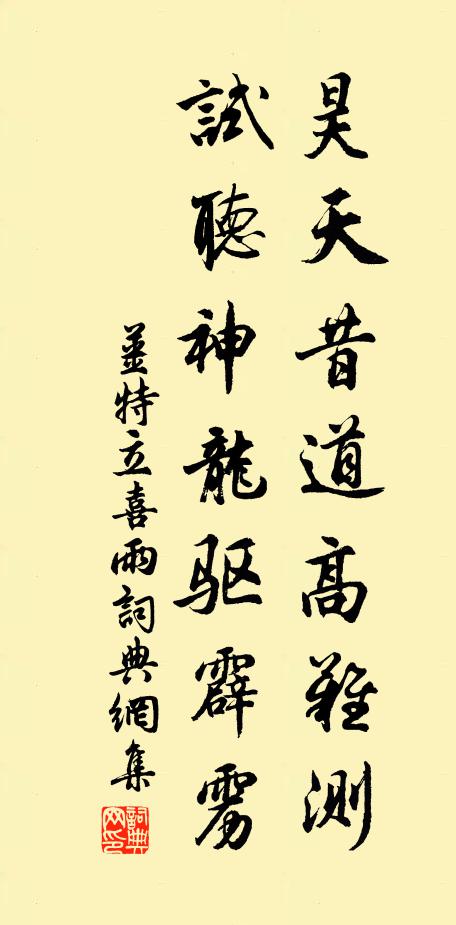 昊天昔道高難測
試聽神龍驱霹雳
姜特立喜雨詞典網集
詞典网印